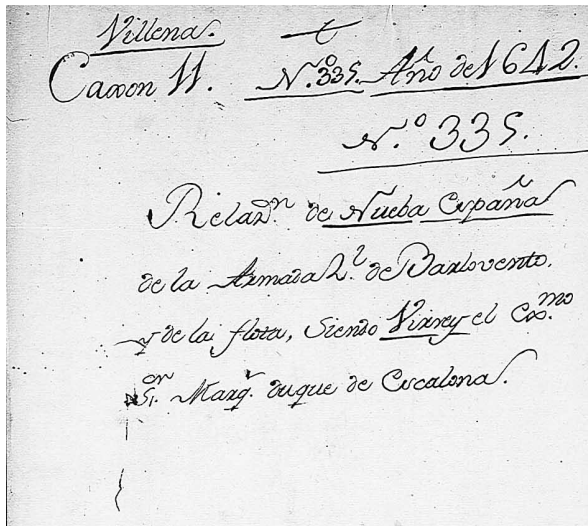 Villena.
Caxon 11. N.º 335. Año de 1642.
N.º 335.
Relazn. de Nueba España
de la Armada Rl. de Barlovento,
y de la flota, Siendo Virrey el Exmo.
Sor. Marq. Duque de Escalona.